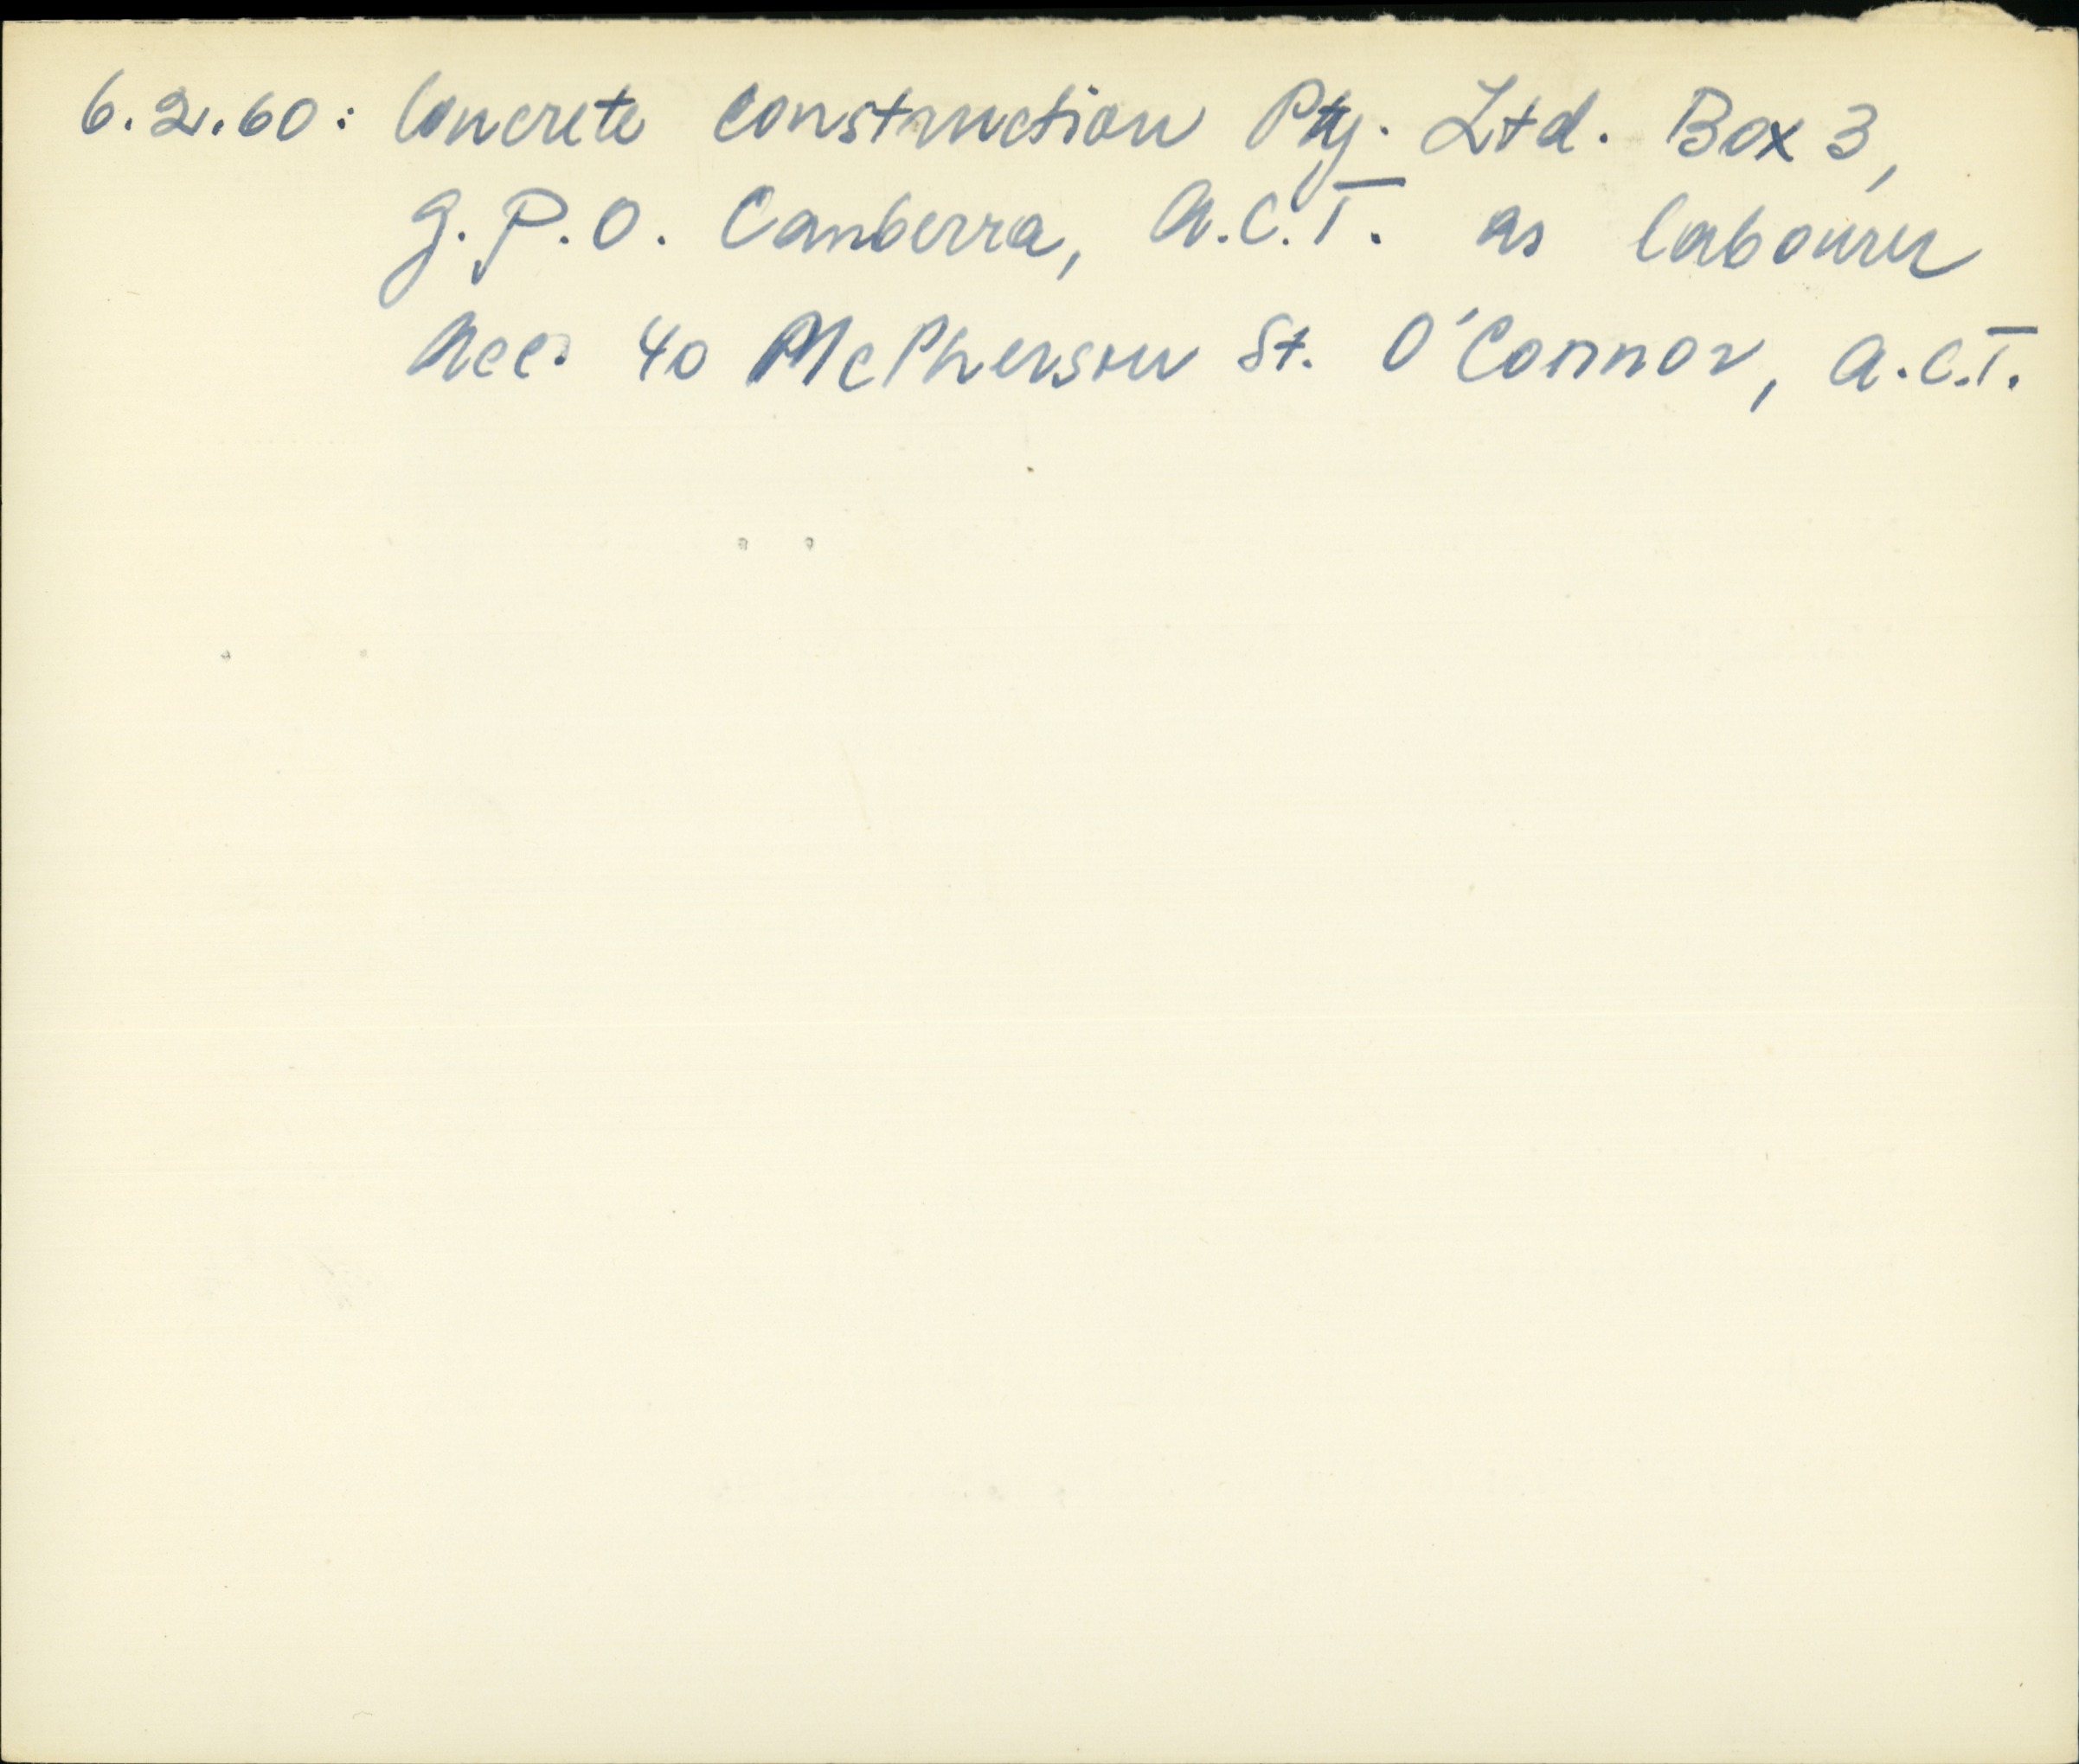 6.2.60: Concrete Construction Pty. Ltd. Box 3,
G.P.O. Canberra, A.C.T. as labourer
Acc. 40 McPherson St. O'Connor, A.C.T.